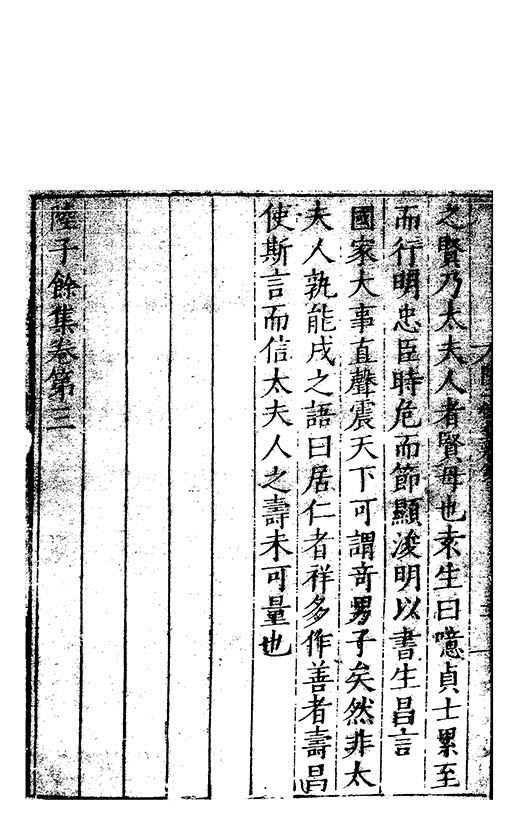 之賢乃太夫人者賢母也袁生曰噫貞士累至
而行明忠臣時危而節顯浚明以書生昌言
國家大事直聲震天下可謂奇男子矣然非太
夫人孰能成之語曰居仁者祥多作善者壽昌
使斯言而信太夫人之壽未可量也
陸子餘集卷第三